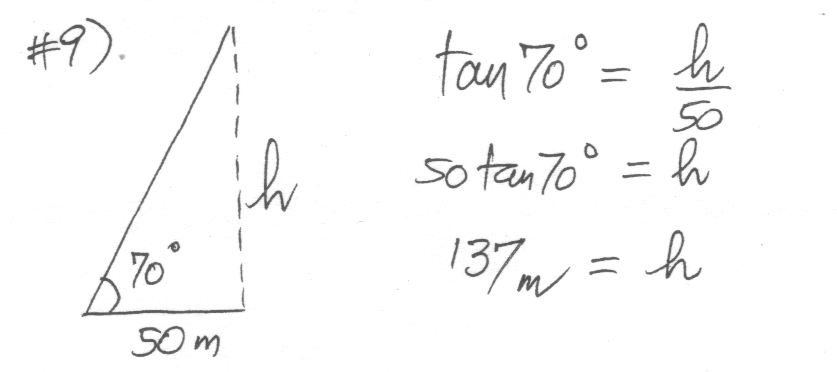 #9).
h
70°
50 m
tan 70° = h/50
50 tan 70° = h
137 m = h